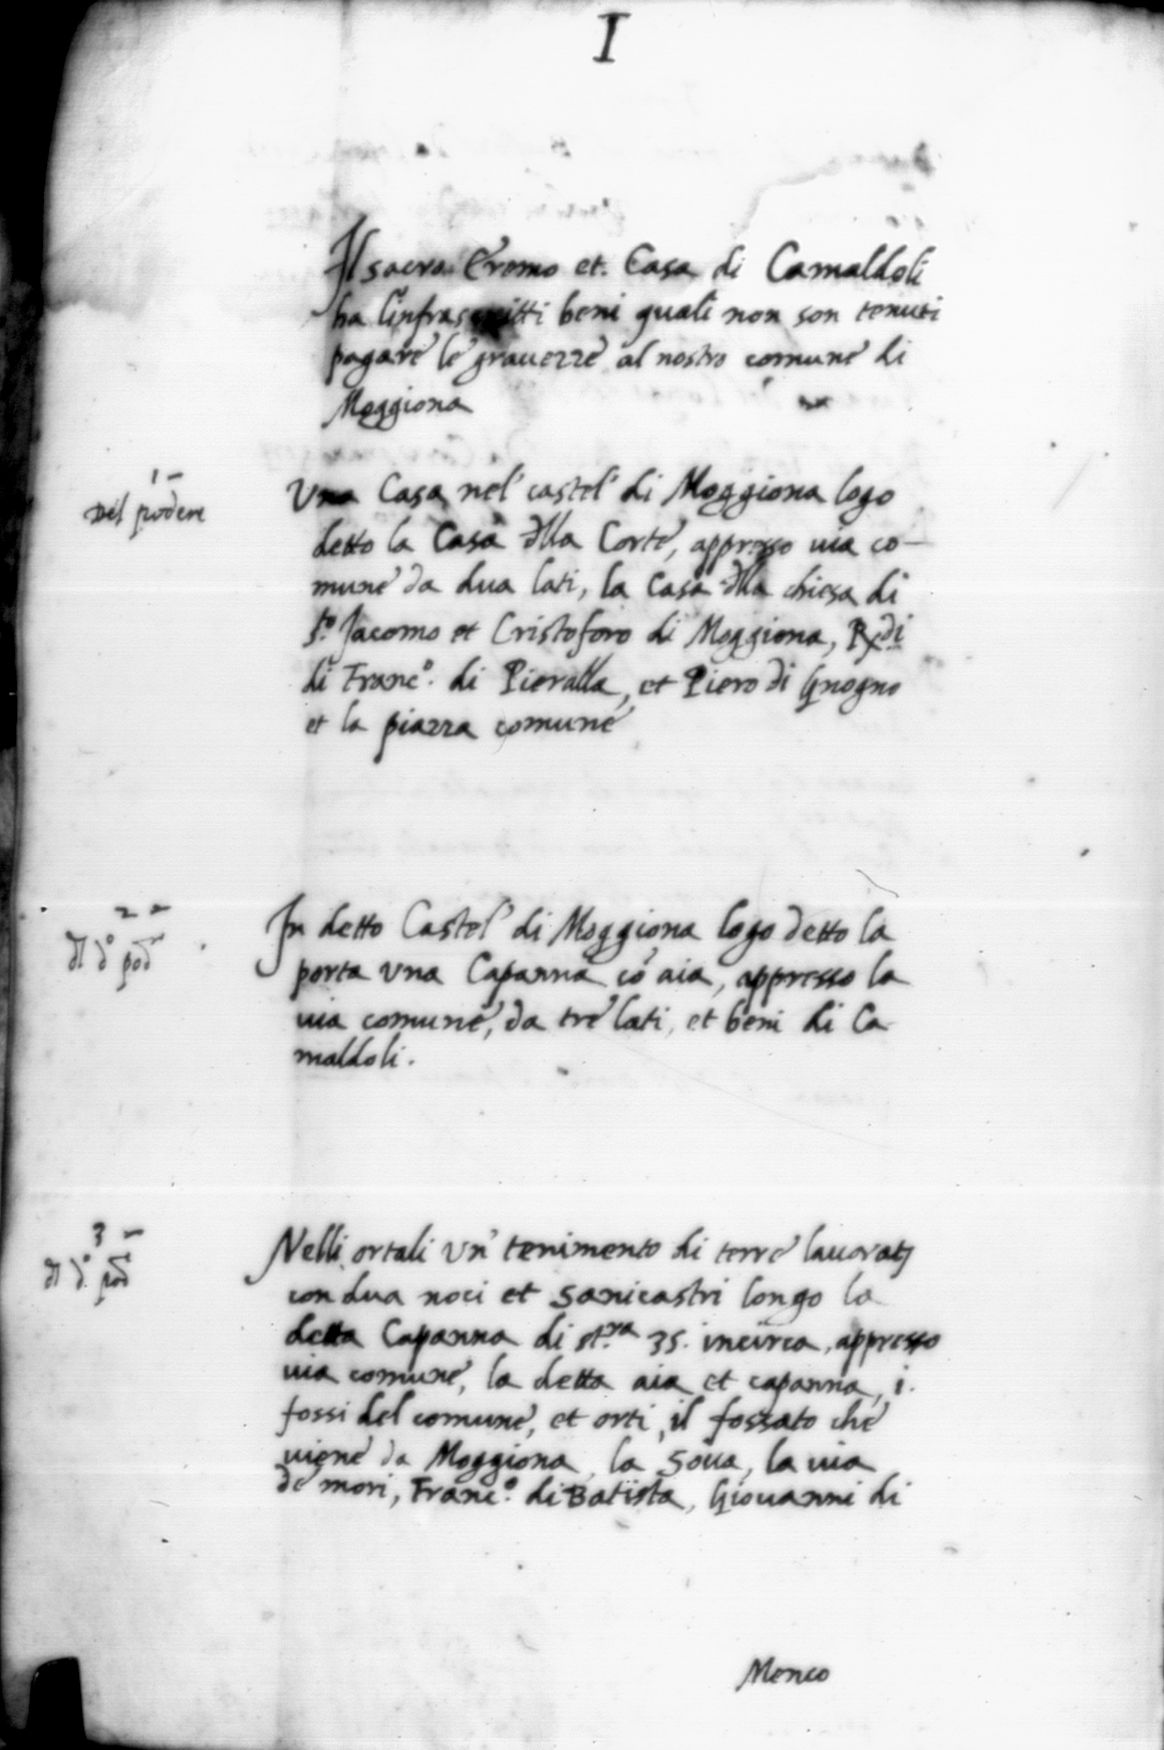 I
Il sacro Eremo et. Casa di Camaldoli
ha l'infrascritti beni quali non son tenuti
pagare le grauezze al nostro comune di
Moggiona
1 -
Del podere
Una Casa nel castel di Moggiona logo
detto la Casa dlla Corte, appresso uia co-
mune da dua lati, la Casa dlla chiesa di
s.to Jacomo et Cristoforo di Moggiona, Rx di
di Franc.o di Pieralla, et Piero di Gnogno
et la piazza comune
2 -
dl d.o pod
In detto Castel di Moggiona logo detto la
porta una Capanna cō aia, appresso la
uia comune, da tre lati, et beni di Ca-
maldoli.
3 -
dl d.o pod
Nelli ortali un' tenimento di terre lauoratj
con dua noci et sanicastri longo la
detta Capanna di st.ra 35. incirca, appresso
uia comune, la detta aia et capanna, i.
fossi del comune, et orti, il fossato che
uiene da Moggiona, la Soua, la uia
de mori, Franc.o di Batista, Giouanni di
Menco